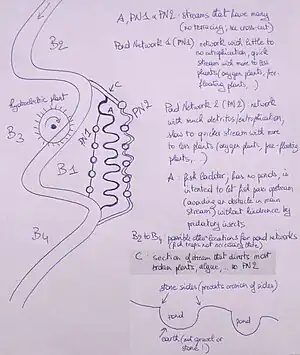 A, PN1 & PN2 : streams that have many
(no terracing, see cross-cut)
Pond Network 1 (PN1) : network with little to
no eutrophication, quick
stream with more to less
plants (oxygen plants, free-
floating plants, ..)
Pond Network 2 (PN2) : network
with much detritus/eutrophication,
slow to quicker stream with more
to less plants (oxygen plants, free-floating
plants, ..)
A : fish facilitor, has no ponds, is
intented to let fish pass upstream
(avoiding an obstacle in main
stream) without hindrance by
predatory insects
B2 to B4 : possible other locations for pond networks
(fish traps not necessary there)
C : section of stream that directs most
broken plants, algae, ... to PN2
stone sides (prevents erosion of sides)
pond
pond
earth (not gravel or
stone!)
B2
hydroelectric plant
B3
B1
B4
C
A
PN1
PN2